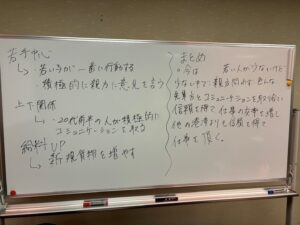 若手中心
↳ 若い子が一番に行動する
・積極的に親方に意見を言う
上下関係
↳ ・20代前半の人が積極的に
コミュニケーションを取る
給料UP
↳ 新規貨物を増やす
まとめ
・今は 若い人が少ないけど
少ない中で親方問わず色んな
先輩方とコミュニケーションを取り合い
信頼を得て仕事の効率を増し
他の港湾よりも信頼を得て
仕事を頂く。